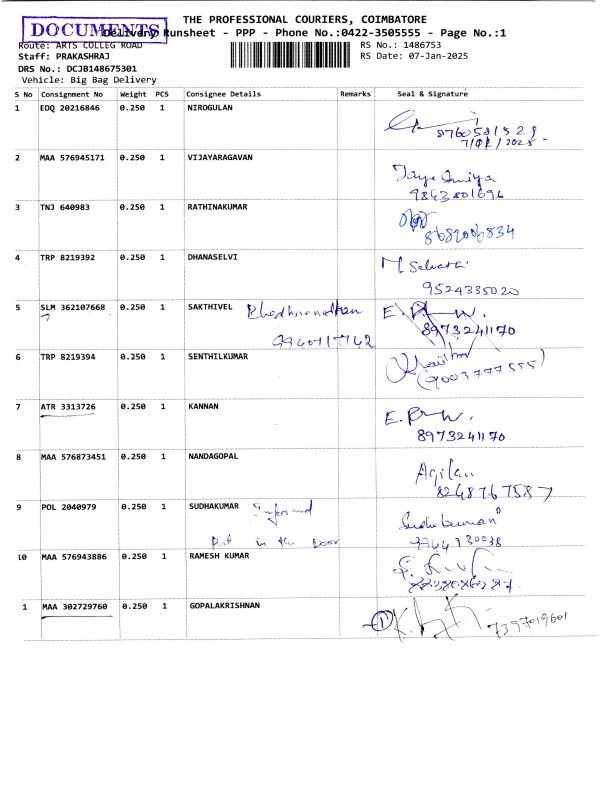 THE PROFESSIONAL COURIERS, COIMBATORE
DOCUMENTS
Delivery Runsheet - PPP - Phone No.:0422-3505555 - Page No.:1
Route: ARTS COLLEG ROAD
RS No.: 1486753
Staff: PRAKASHRAJ
RS Date: 07-Jan-2025
DRS No.: DCJB148675301
Vehicle: Big Bag Delivery
S No Consignment No Weight PCS Consignee Details Remarks Seal & Signature
1 EDQ 20216846 0.250 1 NIROGULAN
8760581529
7/01/2025
2 MAA 576945171 0.250 1 VIJAYARAGAVAN
9843801696
3 TNJ 640983 0.250 1 RATHINAKUMAR
8682006834
4 TRP 8219392 0.250 1 DHANASELVI
9524335020
5 SLM 362107668 0.250 1 SAKTHIVEL
8973241170
6 TRP 8219394 0.250 1 SENTHILKUMAR
(9003777555)
7 ATR 3313726 0.250 1 KANNAN
8973241170
8 MAA 576873451 0.250 1 NANDAGOPAL
Agilan
8248767587
9 POL 2040979 0.250 1 SUDHAKUMAR
Put in the Door
Sudhakumar
9944730038
10 MAA 576943886 0.250 1 RAMESH KUMAR
1 MAA 302729760 0.250 1 GOPALAKRISHNAN
1
7397019601